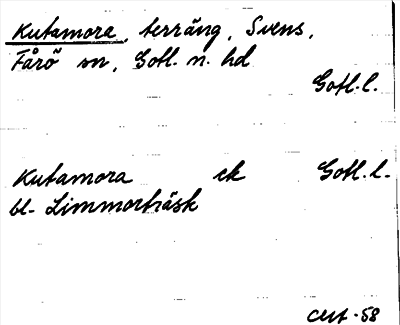 Kutamora, terräng, Svens,
Fårö sn, Gotl. n. hd
Gotl. l.
Kutamora ek Gotl. l.
bl. Limmorträsk
-58